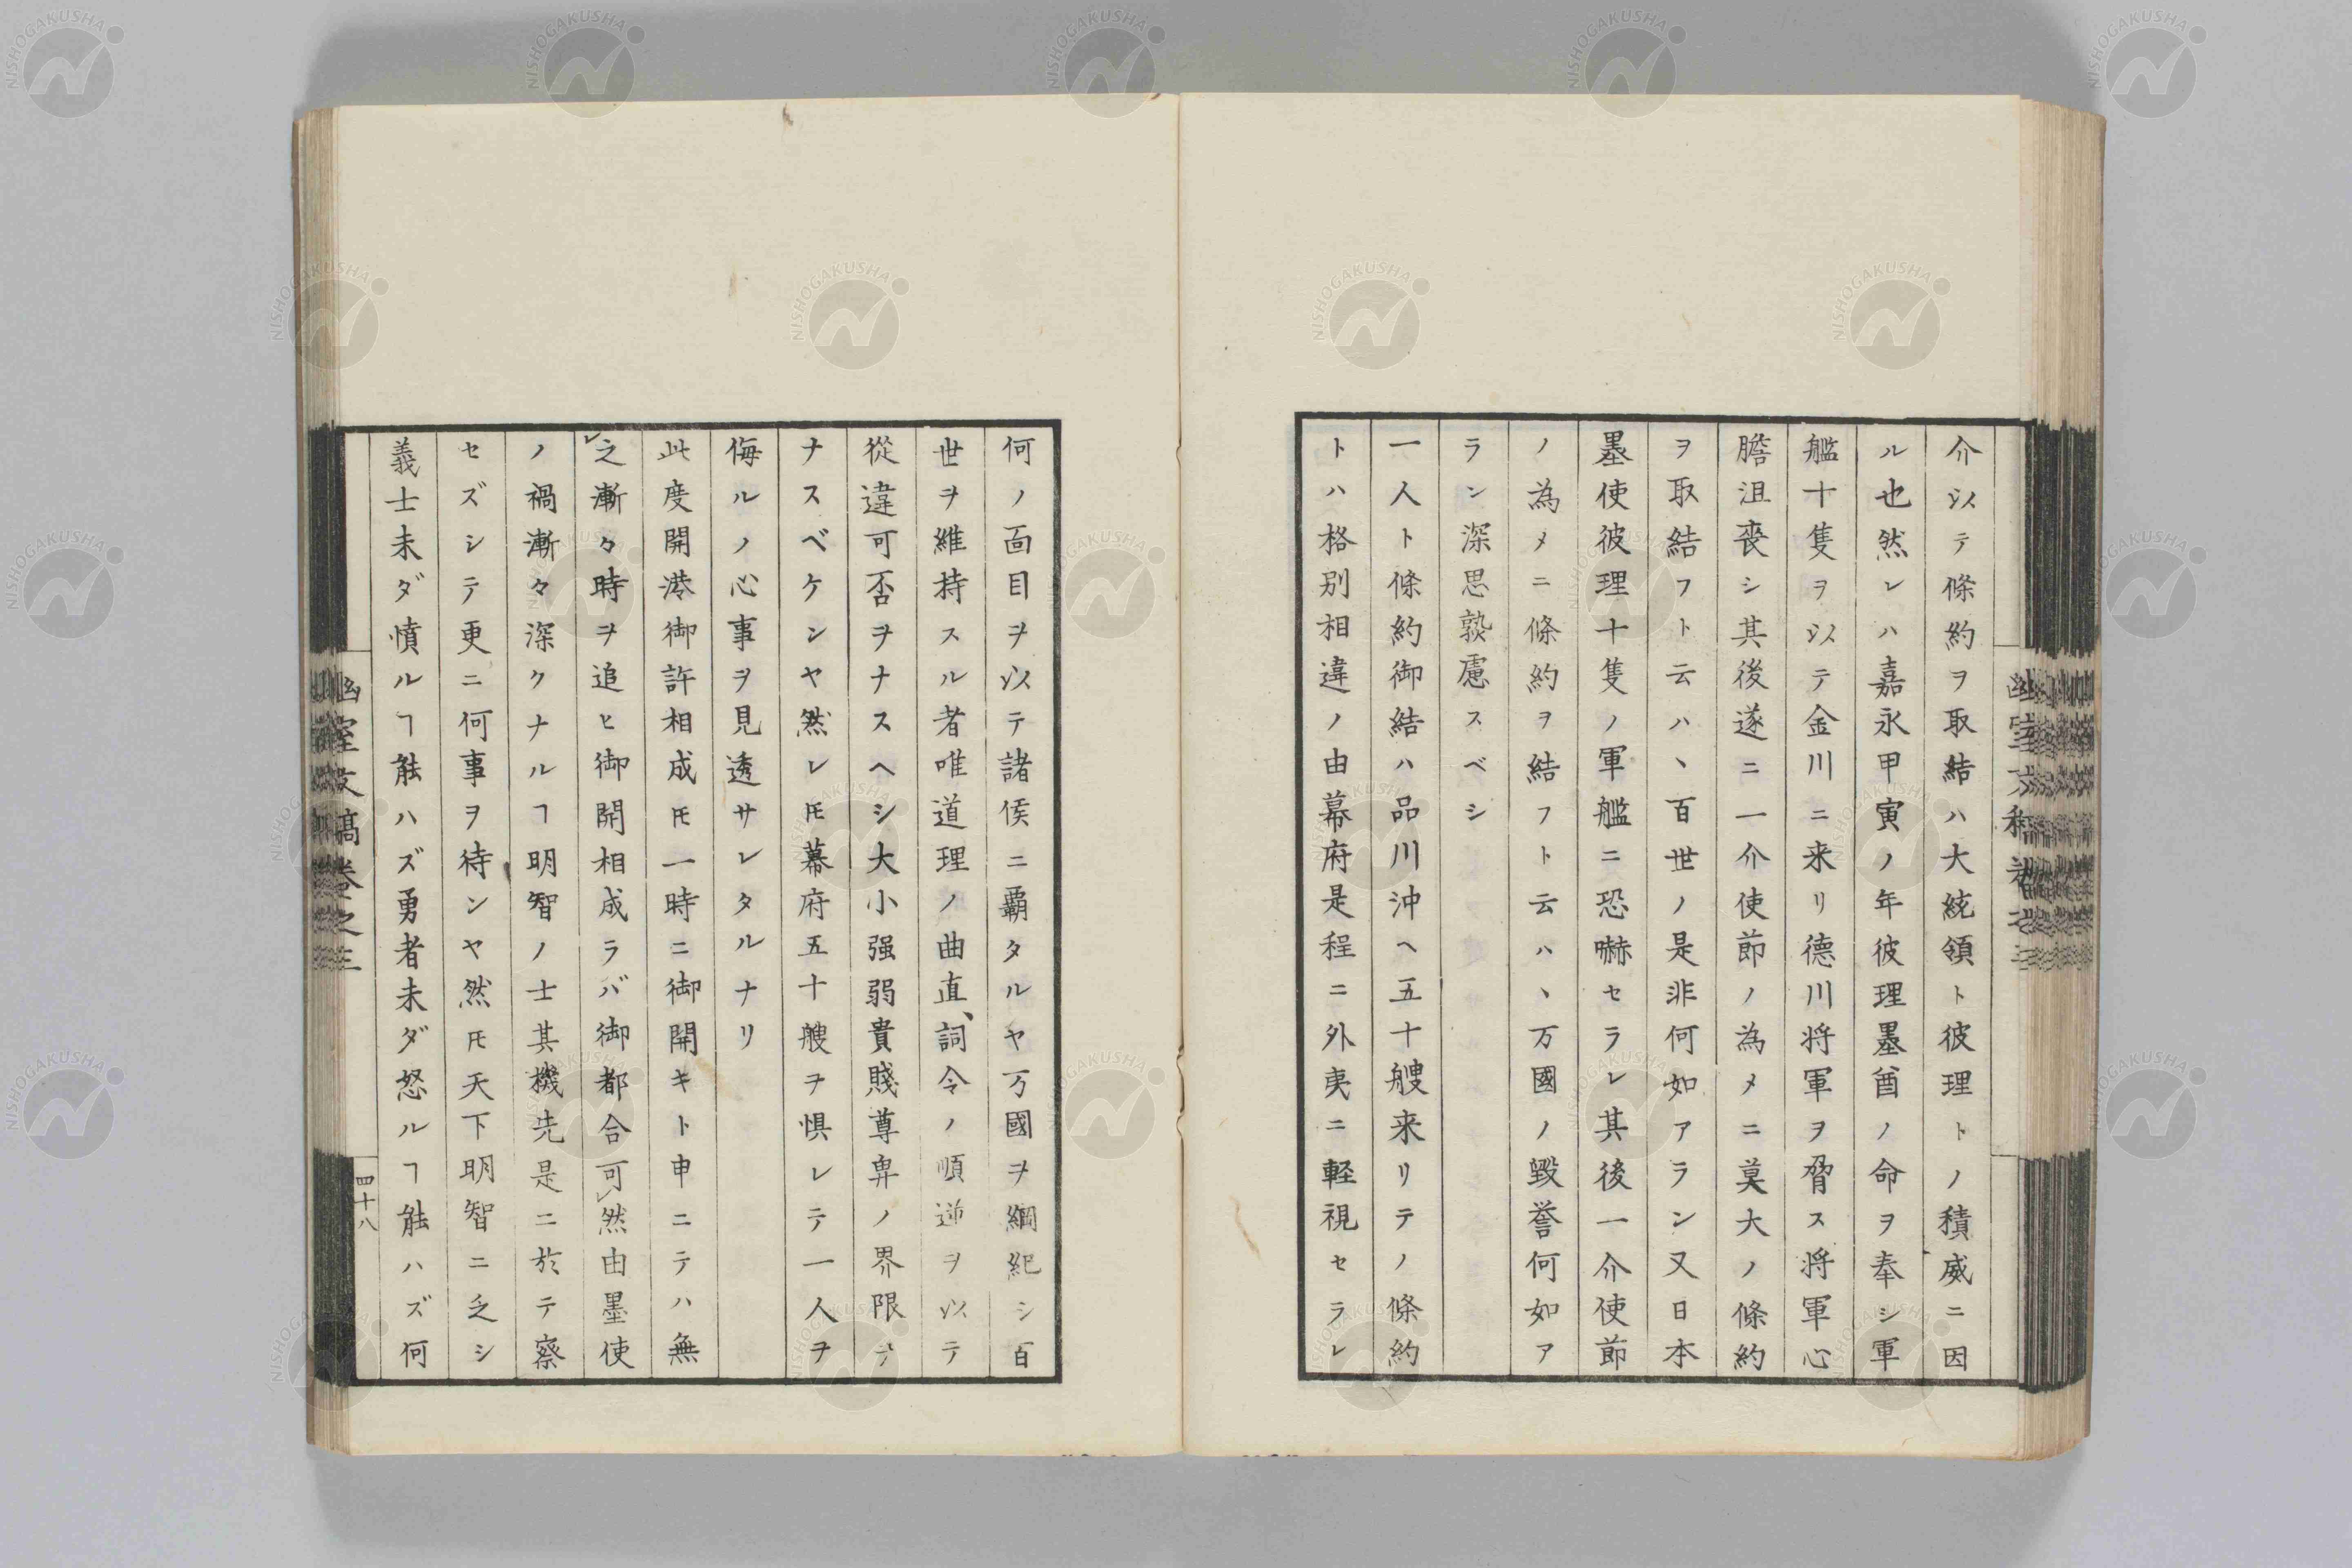 介以テ條約ヲ取結ハ大統領ト彼理トノ積威ニ因
ル也然レハ嘉永甲寅ノ年彼理墨酋ノ命ヲ奉シ軍
艦十隻ヲ以テ金川ニ来リ德川将軍ヲ脅ス将軍心
膽沮喪シ其後遂ニ一介使節ノ為メニ莫大ノ條約
ヲ取結フト云ハヽ百世ノ是非何如アラン又日本
墨使彼理十隻ノ軍艦ニ恐嚇セラレ其後一介使節
ノ為メニ條約ヲ結フト云ハヽ万國ノ毀誉何如ア
ラン深思熟慮スベシ
一人ト條約御結ハ品川沖ヘ五十艘来リテノ條約
トハ格別相違ノ由幕府是程ニ外夷ニ軽視セラレ
何ノ面目ヲ以テ諸侯ニ覇タルヤ万國ヲ綱紀シ百
世ヲ維持スル者唯道理ノ曲直、詞令ノ順逆ヲ以テ
從違可否ヲナスヘシ大小强弱貴賤尊卑ノ界限テ
ナスベケンヤ然レ𪜈幕府五十艘ヲ惧レテ一人ヲ
侮ルノ心事ヲ見透サレタルナリ
此度開港御許相成𪜈一時ニ御開キト申ニテハ無
之漸々時ヲ追ヒ御開相成ラバ御都合可然由墨使
ノ禍漸々深クナルヿ明智ノ士其機先是ニ於テ察
セズシテ更ニ何事ヲ待ンヤ然𪜈天下明智ニ乏シ
義士未ダ憤ルヿ能ハズ勇者未ダ怒ルヿ能ハズ何
幽室文稿卷之三
四十八
NISHOGAKUSHA